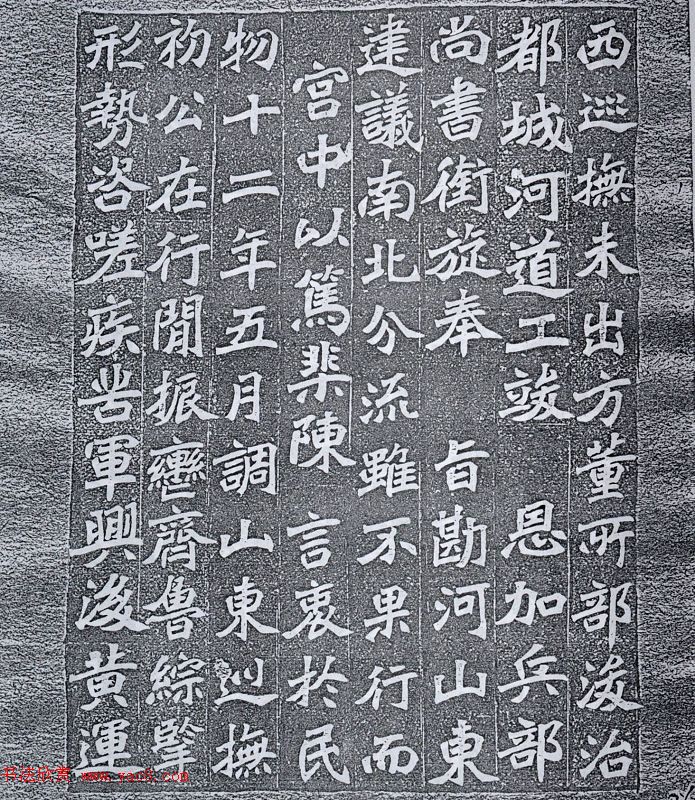 西巡撫未出方董所部浚治
都城河道工竣 恩加兵部
尚書銜旋奉 旨勘河山東
建議南北分流雖不果行而
宮中以篤棐陳 言衷於民
物十二年五月調山東巡撫
初公在行閒振轡齊魯綜擥
形勢咨嗟疾苦軍興浚黄運
书法欣赏 www.yac8.com